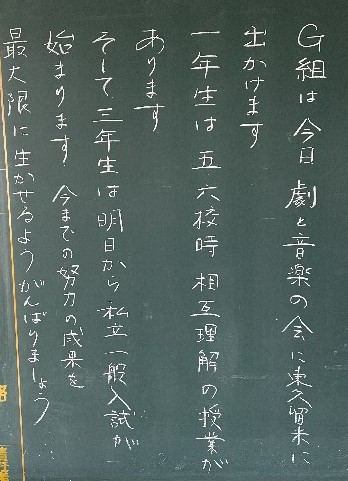 G組は今日劇と音楽の会に東久留米に
出かけます
一年生は五六校時相互理解の授業が
あります
そして三年生は明日から私立一般入試が
始まります 今までの努力の成果を
最大限に生かせるようがんばりましょう